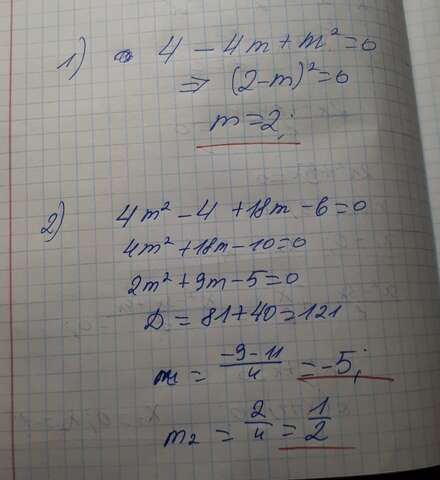 1) 4 - 4m + m² = 0
⇒ (2-m)² = 0
m = 2;
2) 4m² - 4 + 18m - 6 = 0
4m² + 18m - 10 = 0
2m² + 9m - 5 = 0
D = 81 + 40 = 121
m = \frac{-9-11}{4} = -5;
m₂ = \frac{2}{4} = \frac{1}{2}